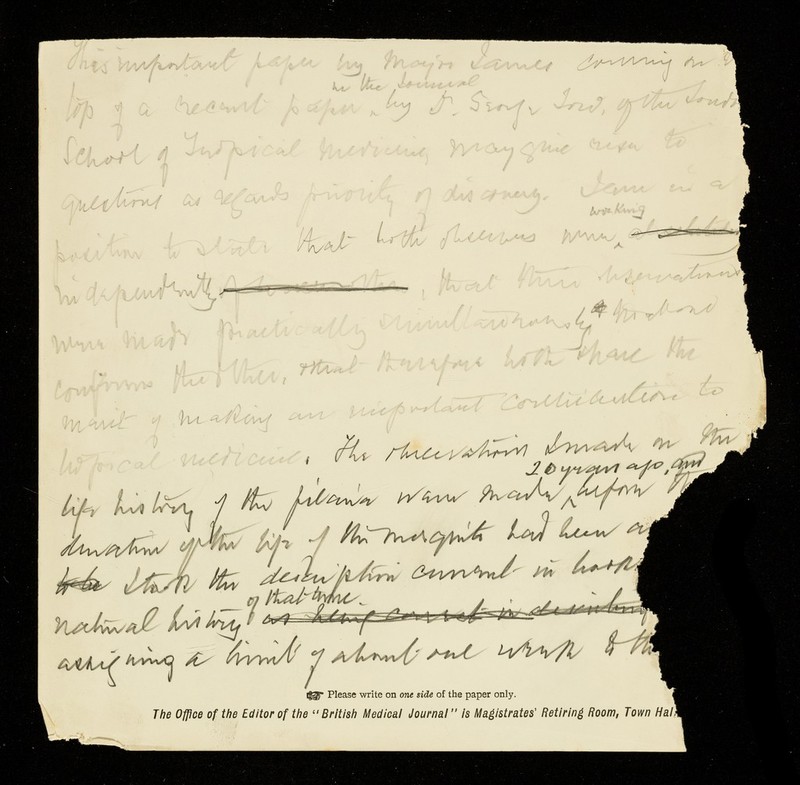 This important paper by Major James coming on
in the Journal
top of a recent paper by Dr. George Low, of the
School of Tropical Medicine, may give rise to
questions as regards priority of discovery. I am in a
working
position to state that both observers were
independently , that their observations
were made practically simultaneously & the one
confirms the other, & that therefore both share the
merit of making an important contribution to
tropical medicine. The observations I made on the
20 years ago, and
life history of the filaria were made before
duration of the life of the mosquito had been
to be I took the description current in books
of that time
natural history as being correct in
assigning a limit of about one week to
☞ Please write on one side of the paper only.
The Office of the Editor of the "British Medical Journal" is Magistrates' Retiring Room, Town Hal